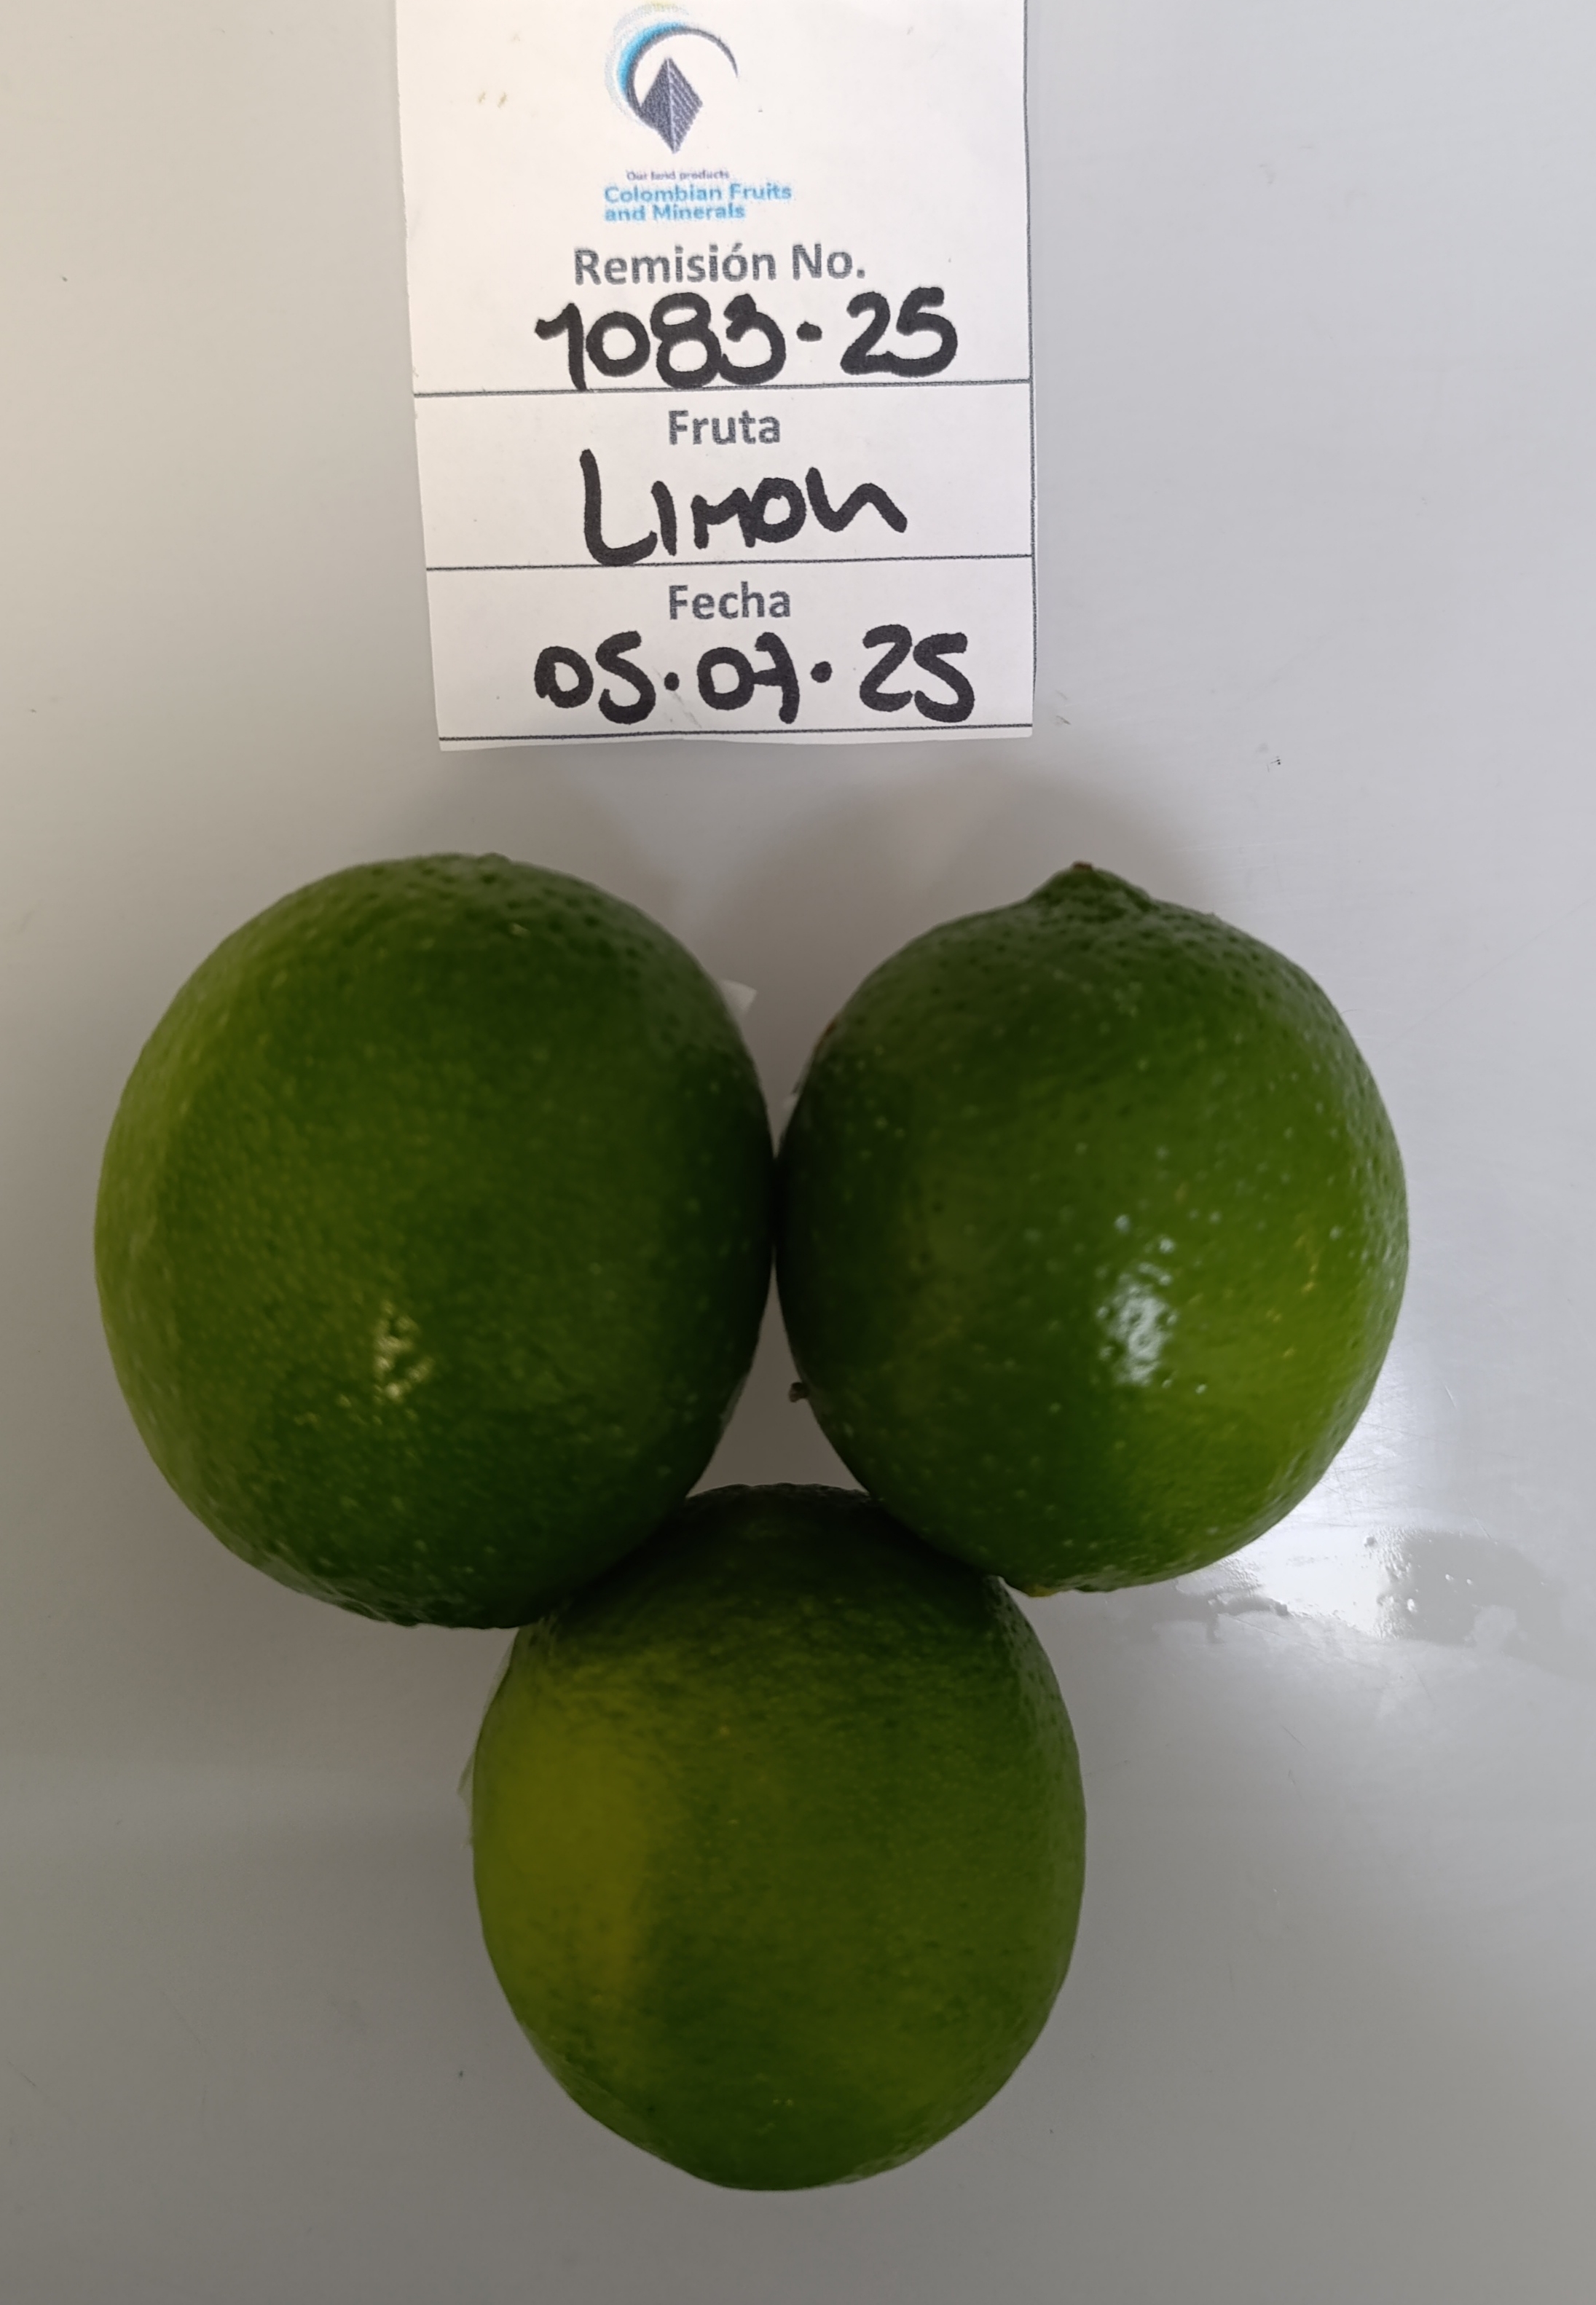 Our land products
Colombian Fruits
and Minerals
Remisión No.
1083-25
Fruta
Limon
Fecha
05.07.25